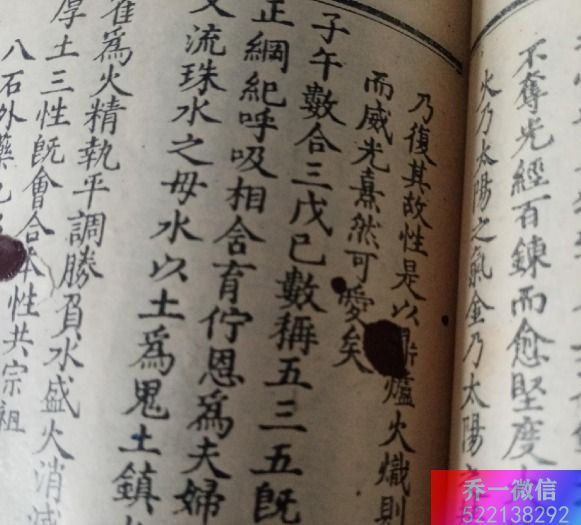 不奪光經百鍊而愈堅度
火乃太陽之氣金乃太陽之
乃復其故性是以爐火熾則
而威光熹然可愛矣
子午數合三戊己數稱五三五既
正綱紀呼吸相含育佇恩為夫婦
流珠水之母水以土為鬼土鎮
雀為火精執平調勝負水盛火消滅
厚土三性既會合本性共宗祖
八石外藥
乔一微信
522138292